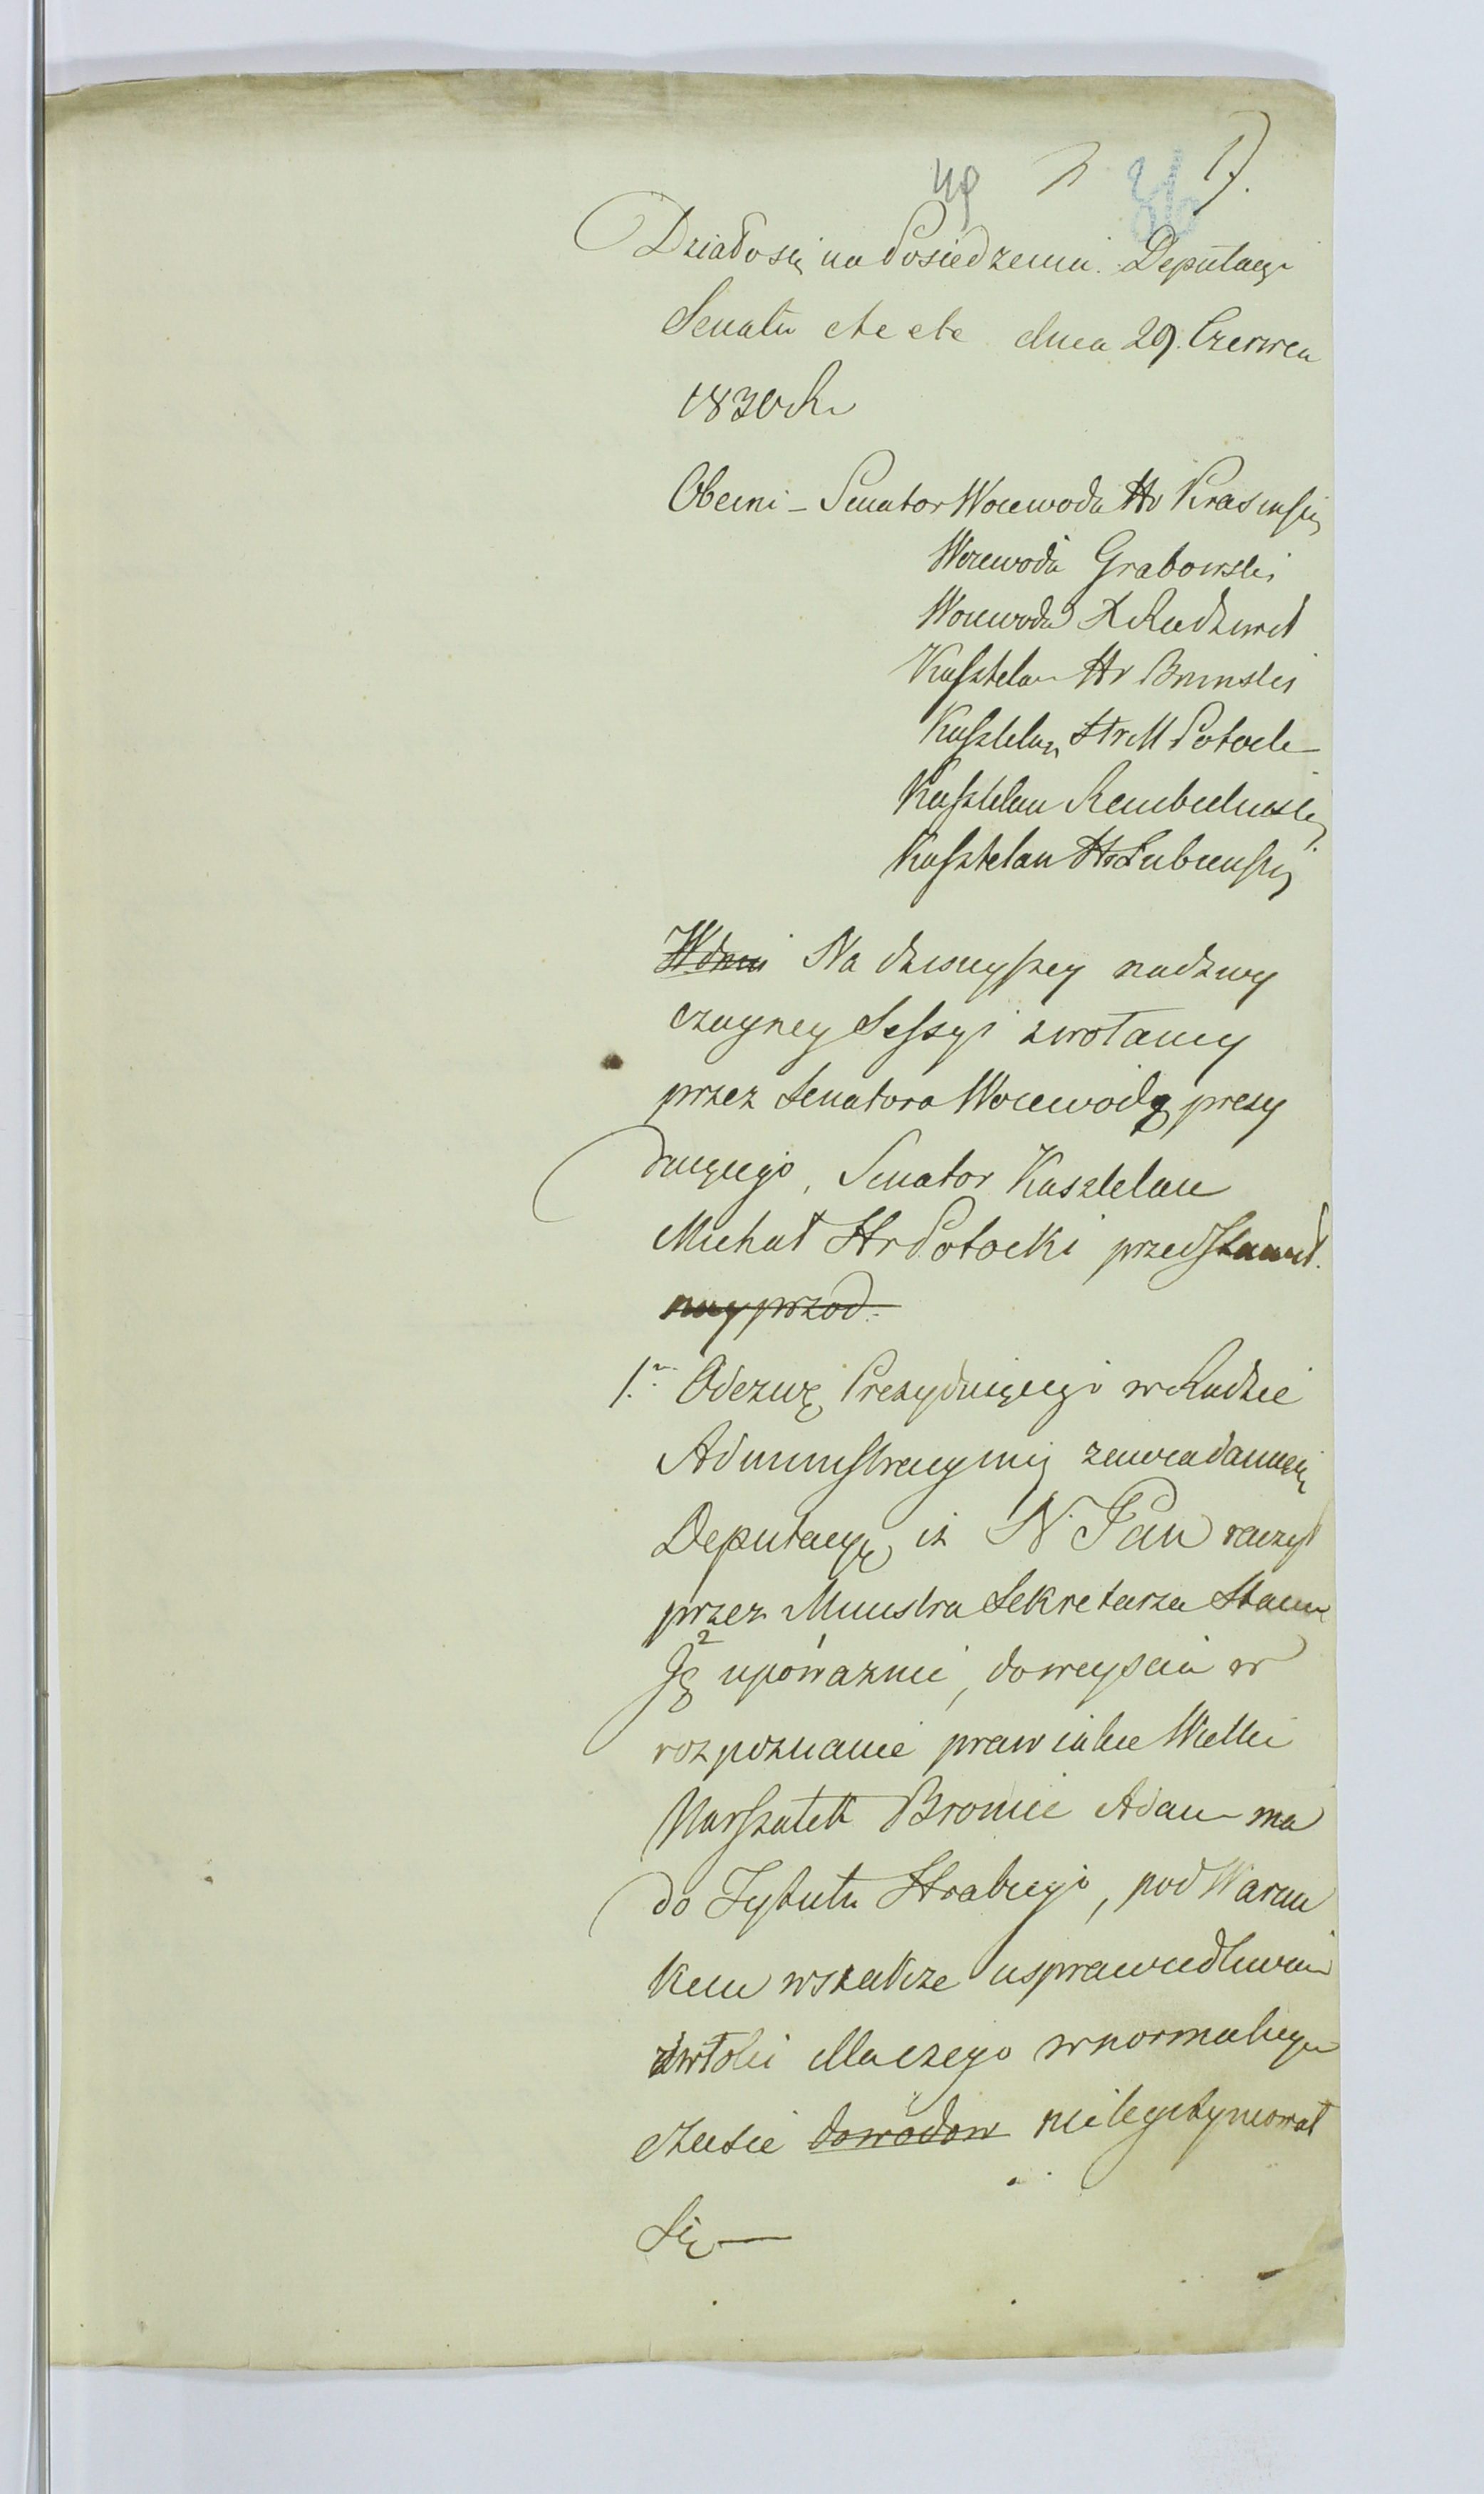 49 86 1).
Działo się na Posiedzeniu Deputacyi
Senatu etc etc dnia 29. Czerwca
1830 R.
Obecni – Senator Woiewoda Hr Krasinski
Woiewoda Grabowski
Woiewoda X Radziwił
Kasztelan Hr Bninski
Kasztelan Hr M Potocki
Kasztelan Rembielinski
Kasztelan Hr Łubienski
W dniu Na dzisieyszey nadzwy
czayney Sessyi zwołaney
przez Senatora Woiewodę prezy
duiącego, Senator Kasztelan
Michał Hr Potocki przedstawił.
nayprzod
1. Odezwę Prezyduiącego w Radzie
Administracyiney zawiadamiaiącą
Deputacyę iż N. Pan raczył
przez Ministra Sekretarza Stanu
Ją upoważnić, do weyscia w
rozpoznanie praw iakie Wielki
Marszałek Bronic Adam ma
do Tytułu Hrabiego, pod Warun
kiem wszakże usprawiedliwienia
zwłoki dlaczego w normalnym
czasie dowodow nie legitymował
Się —